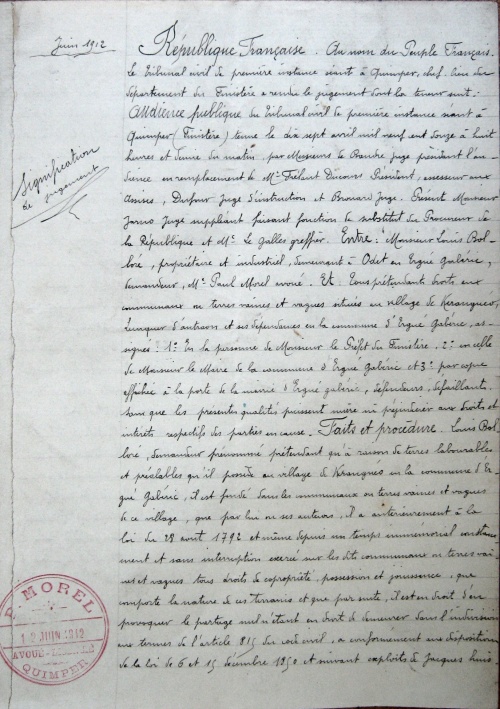 Juin 1912
République Française. Au nom du Peuple Français.
Le tribunal civil de première instance séant à Quimper, chef-lieu du
département du Finistère a rendu le jugement dont la teneur suit :
Audience publique du tribunal civil de première instance séant à
Quimper (Finistère) tenue le dix sept avril mil neuf cent douze à huit
heures et demie du matin, par Messieurs de Juge président l'au
dience en remplacement de Mr Président, empêché aux
assises, Dufour Juge d'instruction et Brouard Juge. Présent Monsieur
Jarno Juge suppléant faisant fonction de substitut du Procureur de
la République et Me Le Galles greffier. Entre : Monsieur Louis Bol-
loré, propriétaire et industriel, demeurant à Odet en Ergué Gabéric,
demandeur, Me Paul Morel avoué. Et : Tous prétendants droits aux
communaux ou terres vaines et vagues situées au village de Kerangués,
et ses dépendances en la commune d'Ergué Gabéric, as-
signés : 1° En la personne de Monsieur le Préfet du Finistère, 2° en celle
de Monsieur le Maire de la commune d'Ergué Gabéric et 3° par copie
affichée à la porte de la mairie d'Ergué gabéric, défendeurs, défaillants,
sans que les présentes qualités puissent nuire ni préjudicier aux droits et
intérêts respectifs des parties en cause. Faits et procédure. Louis Bol-
loré, demandeur prénommé prétendant qu'à raison de terres labourables
et préalables qu'il possède au village de Krangues en la commune d'Er
gué Gabéric, il est fondé dans les communaux ou terres vaines et vagues
de ce village, que par lui ou ses auteurs, il a antérieurement à la
loi du 28 août 1792 et même depuis un temps immémorial constam
ment et sans interruption exercé sur les dits communaux ou terres vai-
nes et vagues tous droits de copropriété, possession et jouissance, que
comporte la nature de ces terrains et que par suite, il est en droit d'en
provoquer le partage nul n'étant en droit de demeurer dans l'indivision
aux termes de l'article 815 du code civil, a conformément aux dispositions
de la loi de 6 et 15 décembre 1850 et suivant exploits de Jacques huis
Signification
de jugement
P. MOREL
12 JUIN 1912
AVOUÉ
QUIMPER